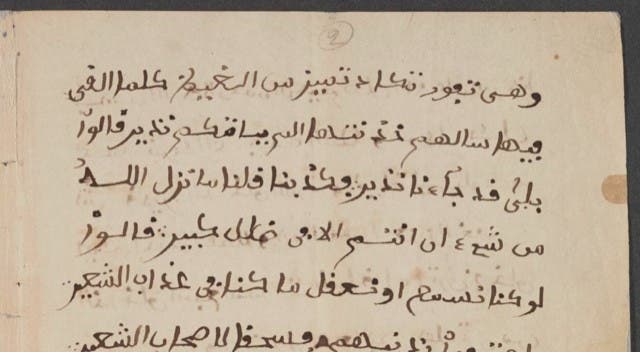 2
وهى تفور تكاد تميز من الغيظ كلما القى
فيها سالهم خز نتها الم ياتكم نذير قالوا
بلى قد جاءنا نذير فكذبنا قلنا ما نزل الله
من شىء ان انتم الا فى ضلل كبير قالوا
لو كنا نسمع او نعقل ما كنا فى عذاب الشعير
فسحقا لاصحاب الشعير